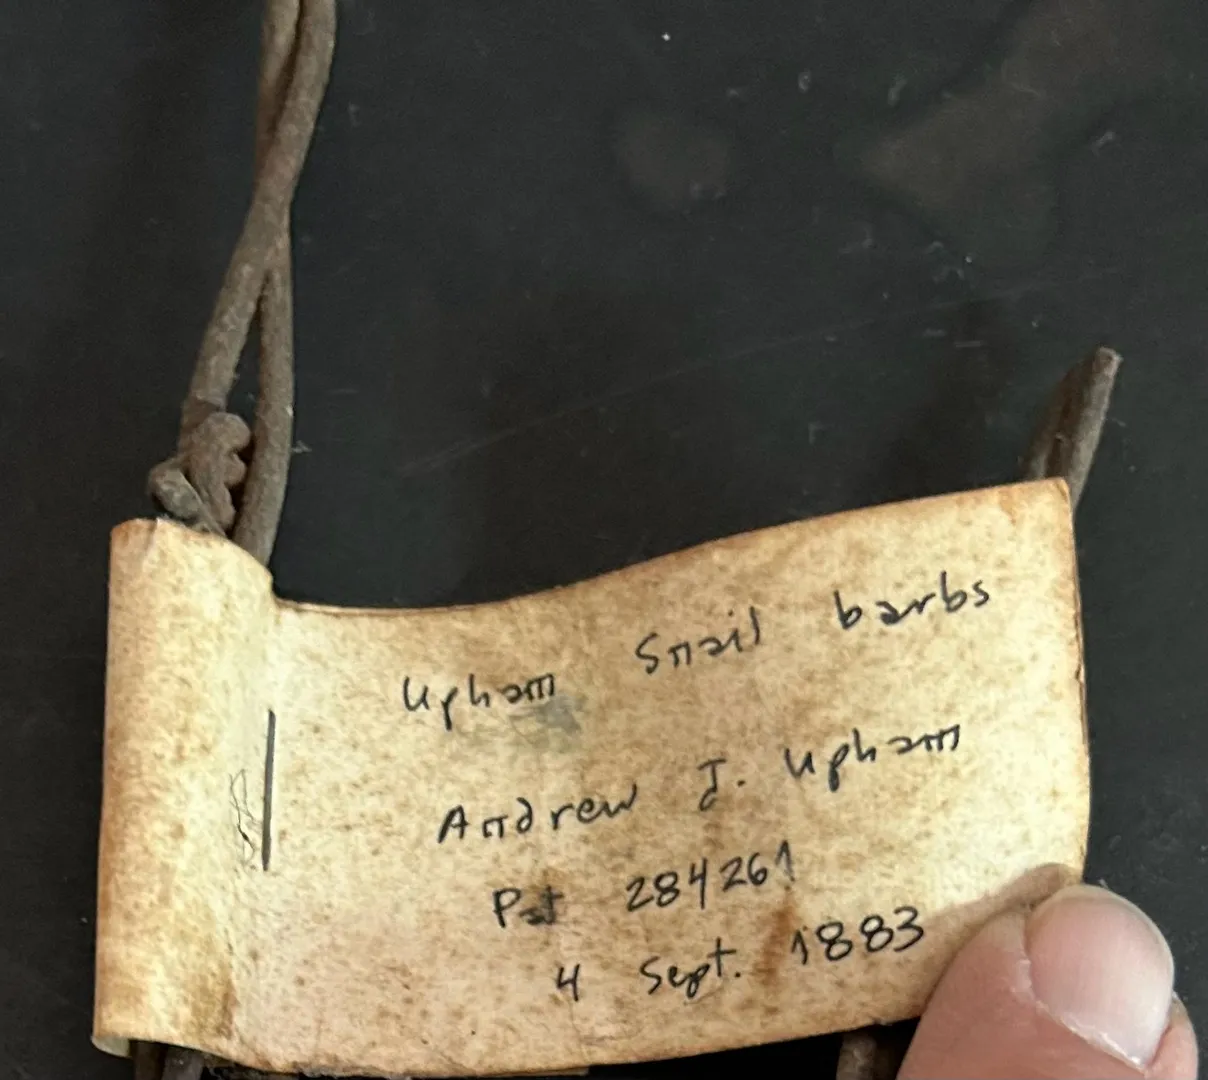 Upham Snail barbs
Andrew J. Upham
Pat 284261
4 Sept. 1883